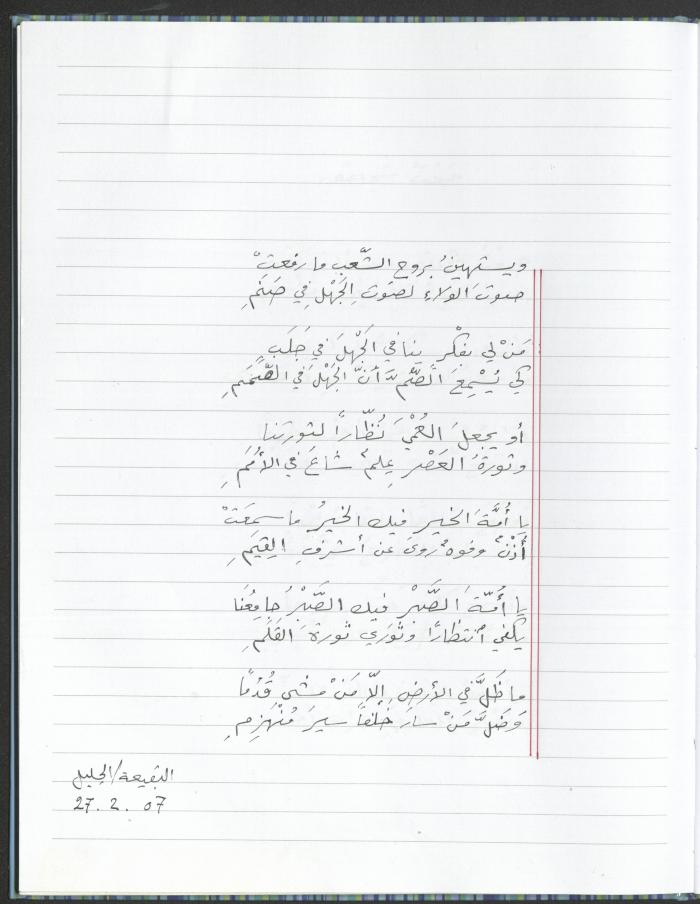 ويستهينُ بروحِ الشَّعبِ ما رفعتْ
صوتَ الولاءِ لصَوتِ الجَهْلِ في صَنَمِ
مَنْ لي بفكْرٍ ينافي الجَهْلَ في حَلَبٍ
كي يُسْمِعَ الصُّمَّ أنَّ الجَهْلَ في الصَّمَمِ
أو يجعلَ العُمْيَ نُظّاراً لثورتنا
وثورةُ العَصْرِ عِلمٌ شاعَ في الأُمَمِ
يا أُمَّةَ الخيرِ فيك الخيرُ ما سمِعَتْ
أُذْنٌ وفوهٌ روىَ عن أشرفِ القِيَمِ
يا أُمّةَ الصَّبْرِ فيك الصَّبْرُ جامِعُنَا
يكفي انتظارًا وثُوري ثورةَ القَلَمِ
ما ظَلَّ في الأرضِ إلّا مَنْ مشى قُدُمًا
وَضَلَّ مَنْ سارَ خَلْفاً سيرَ مُنْهَزِمِ
البقيعة/الجليل
27. 2. 07